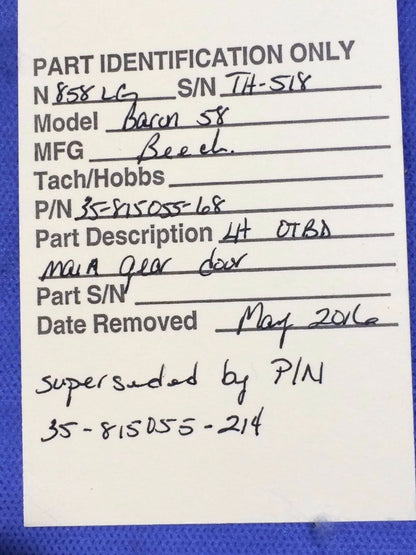 PART IDENTIFICATION ONLY
N 858LG S/N TH-518
Model Baron 58
MFG Beech.
Tach/Hobbs
P/N 35-815055-168
Part Description LH OTBD
main gear door
Part S/N
Date Removed May 2016
superseded by P/N
35-815055-214